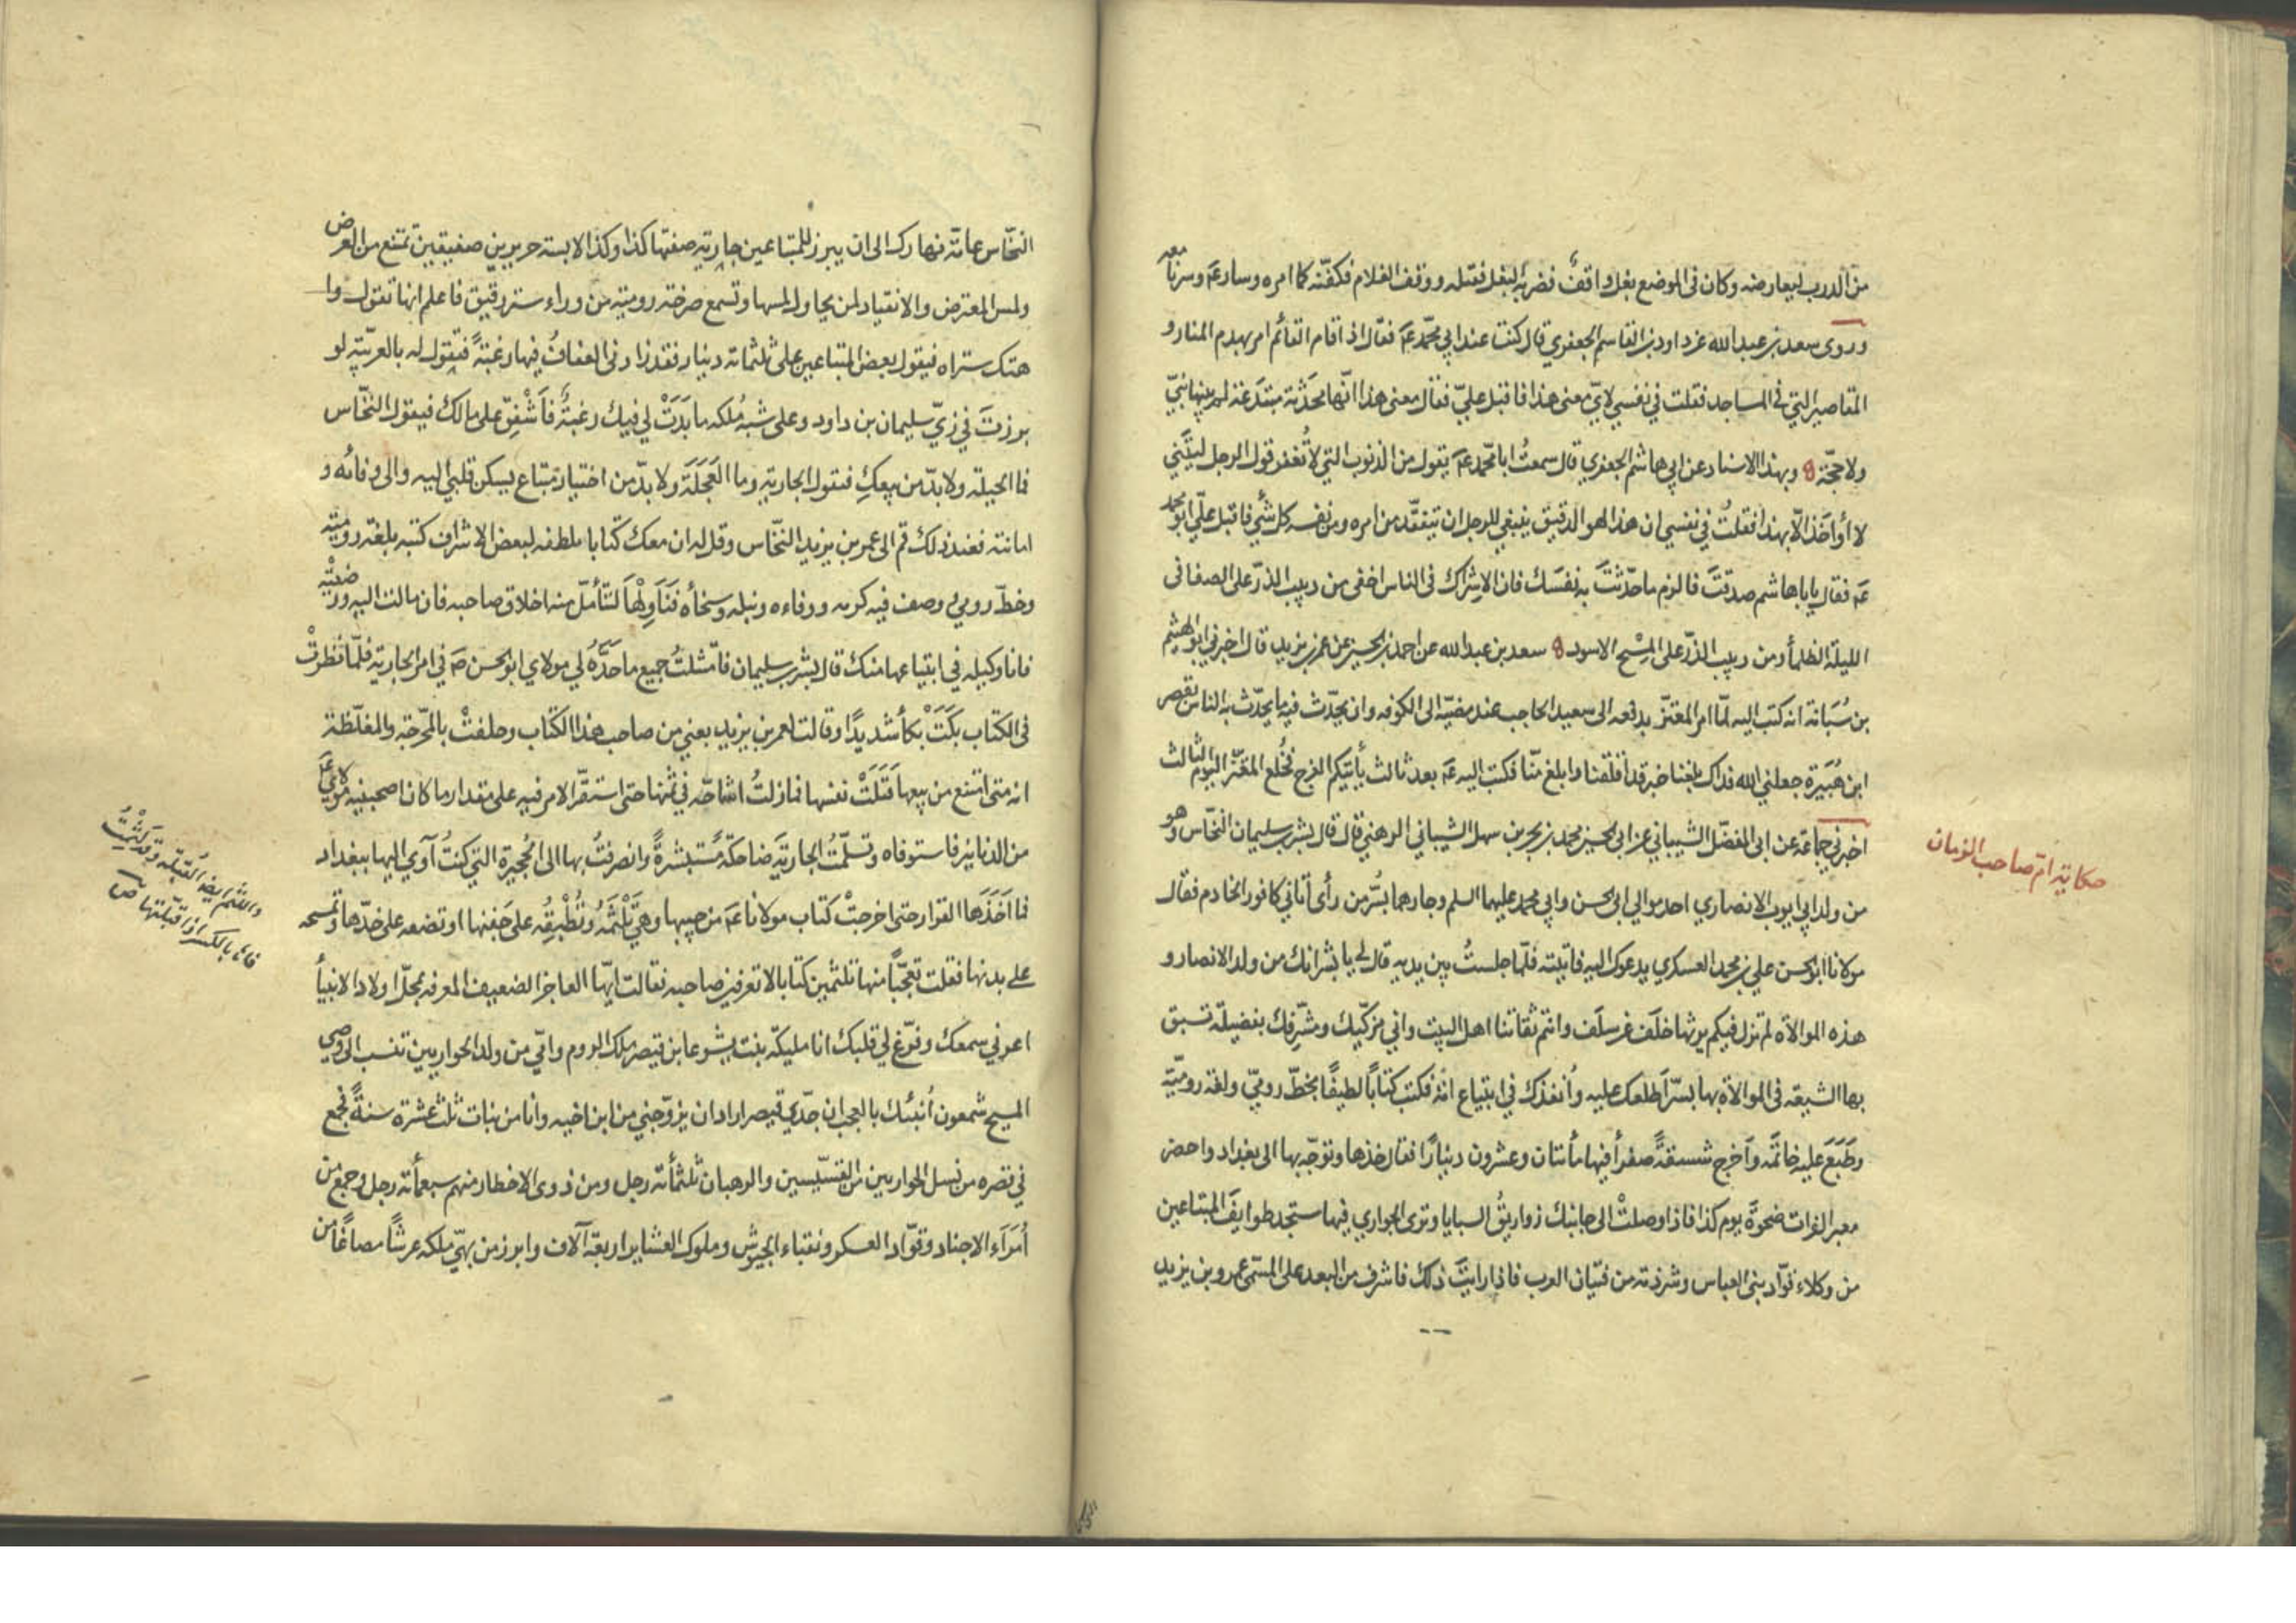 من الدرب ليعارضه وكان في الموضع بغل واقف فضربه البغل فقتله ووقف الغلام فكفنه كما امره وسار عه وسرنا معه
وروى سعد بن عبد الله عن داود بن القاسم الجعفري قال كنت عند ابي محمد عه فقال اذا قام القائم امر بهدم المنار و
المقاصير التي في المساجد فقلت في نفسي لاي معنى هذا فاقبل علي فقال معنى هذا انها محدثة مبتدعة لم يبنها نبي
ولا حجة وبهذا الاسناد عن ابي هاشم الجعفري قال سمعت ابا محمد عه يقول من الذنوب التي لا تُغفر قول الرجل ليتني
لا أواخذ الا بهذا فقلتُ في نفسي ان هذا لهو الدقيق ينبغي للرجل ان يتفقد من امره ومن نفسه كل شيء فاقبل عليّ ابو محمد
عه فقال يا باهاشم صدقتَ فالزم ما حدّثتَ به نفسك فان الاشراك في الناس اخفى من دبيب الذرّ على الصفا في
الليلة الظلمأ ومن دبيب الذرّ على المِسْح الاسود سعد بن عبد الله عن احمد بن الحسين عن عمر بن يزيد قال اخبرني ابو الهيثم
بن سُبانة انه كتب اليه لمّا امر المعتز بدفعه الى سعيد الحاجب عند مضيّه الى الكوفه وان يحدّث فيه ما يحدّث به الناس بقصر
ابن هُبَيرة جعلني الله فداك بلغنا خبر قد اقلقنا وابلغ منّا فكتب اليه عه بعد ثالث يأتيكم الفرج فخُلع المعتزّ اليوم الثالث
اخبرني جماعة عن ابي المفضّل الشيباني عن ابي الحسين محمد بن بحر بن سهل الشيباني الرهني قال قال بشر بن سليمان النخّاس وهو
حكاية امّ صاحب الزمان
من ولد ابي ايوب الانصاري احد موالي ابي الحسن وابي محمد عليهما السلم وجارهما بسُرّ من رأى أتاني كافور الخادم فقال
مولانا ابو الحسن علي بن محمد العسكري يدعوك اليه فاتيته فلمّا جلستُ بين يديه قال لي يا بشر انك من ولد الانصار و
هذه الموالاة لم تزل فيكم يرثها خلَف عن سلَف وانتم ثقاتنا اهل البيت واني مزكّيك ومشرّفك بفضيلة تسبق
بها الشيعة في الموالاة بها بسرّ اطلعك عليه وأنفذك في ابتياع امة فكتب كتاباً لطيفًا بخطّ روميّ ولغة روميّة
وطَبَعَ عليه خاتَمَه وأخرج شسقةً صفرأ فيها مأتان وعشرون دينارًا فقال خذها وتوجّه بها الى بغداد واحضر
معبر الفرات ضحوةَ يوم كذا فاذا وصلتْ الى جانبك زواريقُ السبايا وترى الجواري فيها ستجد طوايفَ المبتاعين
من وكلاء قوّاد بني العباس وشرذمة من فتيان العرب فاذا رايتَ ذلك فاشرف من البعد على المسمّى عمرو بن يزيد
النخّاس عامّة نهارك الى ان يبرز للمبتاعين جارية صفتها كذا وكذا لابسة حريرين صفيقين تمتنع من العرض
ولمس المعترض والانقياد لمن يحاول لمسها وتسمع صرخة رومية من وراء ستر رقيق فاعلم انها تقول وا
هتك ستراه فيقول بعض المبتاعين علي ثلثماته دينار فقد زادني العفافُ فيها رغبةً فتقول له بالعربيّة لو
برزتَ في زيّ سليمان بن داود وعلى شبه مُلكه ما بَدَتْ لي فيك رغبةٌ فَأَشْفِقْ على مالك فيقول النخّاس
فما الحيلة ولا بدّ من بيعكِ فتقول الجارية وما العَجَلَة ولا بدّ من اختيار مبتاع يسكن قلبي اليه والى وفائه و
امانته فعند ذلك قم الى عمر بن يزيد النخّاس وقل له ان معك كتابا ملطفه لبعض الاشراف كتبه بلغة روميّة
وخطّ روميّ وصف فيه كرمه ووفاءه ونبله وسخأه فَنَاوِلْهَا لتتأمّل منه اخلاق صاحبه فان مالت اليه ورضيَتْه
فانا وكيله في ابتياعها منك قال بشر بن سليمان فامتثلتُ جميع ما حدّه لي مولاي ابو الحسن عه في امر الجارية فلمّا نظرتْ
في الكتاب بكَتْ بكأ شديدًا وقالت لعمر بن يزيد بعني من صاحب هذا الكتاب وحلفتْ بالمحرّجة والمغلّظة
انه متى امتنع من بيعها قَتَلَتْ نفسها فما زلتُ اشاحّه في ثمنها حتى استقرّ الامر فيه على مقدار ما كان اصحبنيه مولاي عه
من الدنانير فاستوفاه وتسلّمتُ الجارية ضاحكةً مُستبشرةً وانصرفتُ بها الى الحُجيرة التي كنتُ آوي اليها ببغداد
فما اخَذَها القرار حتى اخرجتْ كتاب مولانا عه من جيبها وهي تَلْثمُه وتُطبِقُه على جَفنها وتضعه على خدّها وتمسحه
على بدنها فقلت تعجّباً منها تلثمين كتابا لا تعرفين صاحبه فقالت ايّها العاجز الضعيف المعرفه بمحلّ اولاد الانبيأ
اعرني سمعك وفرّغ لي قلبك انا مليكة بنت يشوعا بن قيصر ملك الروم وامّي من ولد الحواريين تنسب الى وصي
المسيح شمعون أُنبئك بالعجب ان جدّي قيصر اراد ان يزوّجني من ابن اخيه وانا من بنات ثلث عشرة سنةً فجمع
في قصره من نسل الحواريين من القسّيسين والرهبان ثلثمأة رجل ومن ذوي الاخطار منهم سبعمأة رجل وجمع من
أمراء الاجناد وقوّاد العسكر ونقباء الجيوش وملوك العشاير اربعة آلاف وابرز من بهيّ ملكه عرشًا مصاغًا من
واللثم ايضا القبلة وقد لَثِمْتُ
فاها بالكسر اذا قبّلتها ص